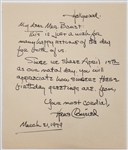 Hollywood
My dear Mrs. Bane:
This is just a wish for
many happy returns of the day
for both of us.
Since we share April 15th
as our natal day, you will
appreciate how sincere these
birthday greetings are, from,
Yours most cordially,
March 21, 1939